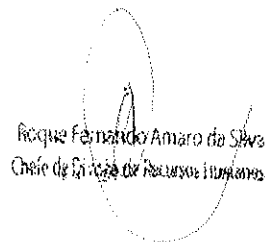 Roque Fernando Amaro da Silva
Chefe de Divisão de Recursos Humanos